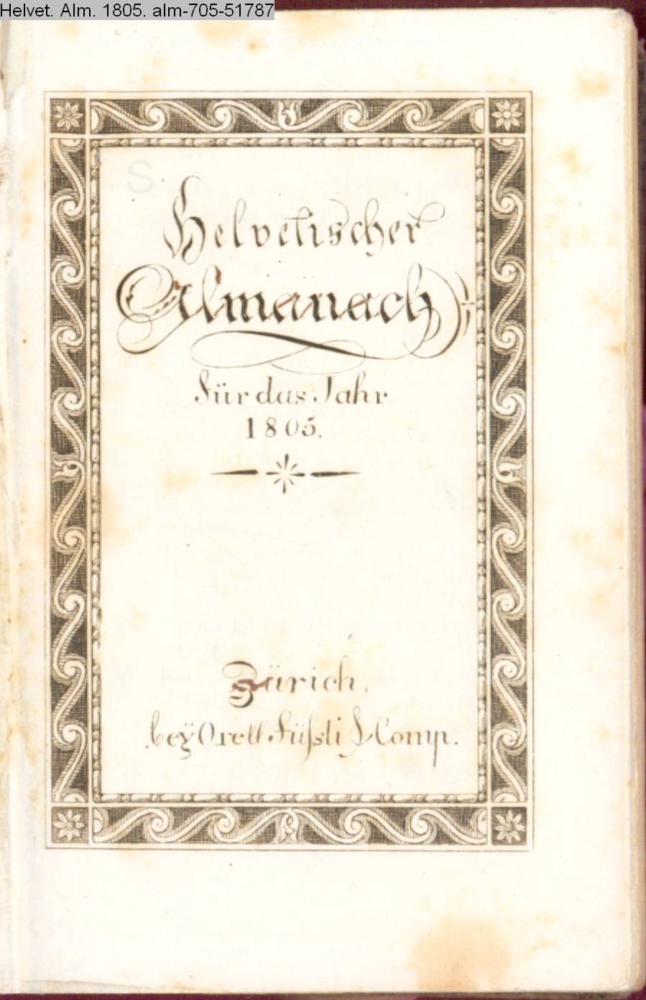 Helvet. Alm. 1805. alm-705-51787
Helvetischer
Almanach
für das Jahr
1805.
Zürich,
bey Orell Füſsli & Comp.